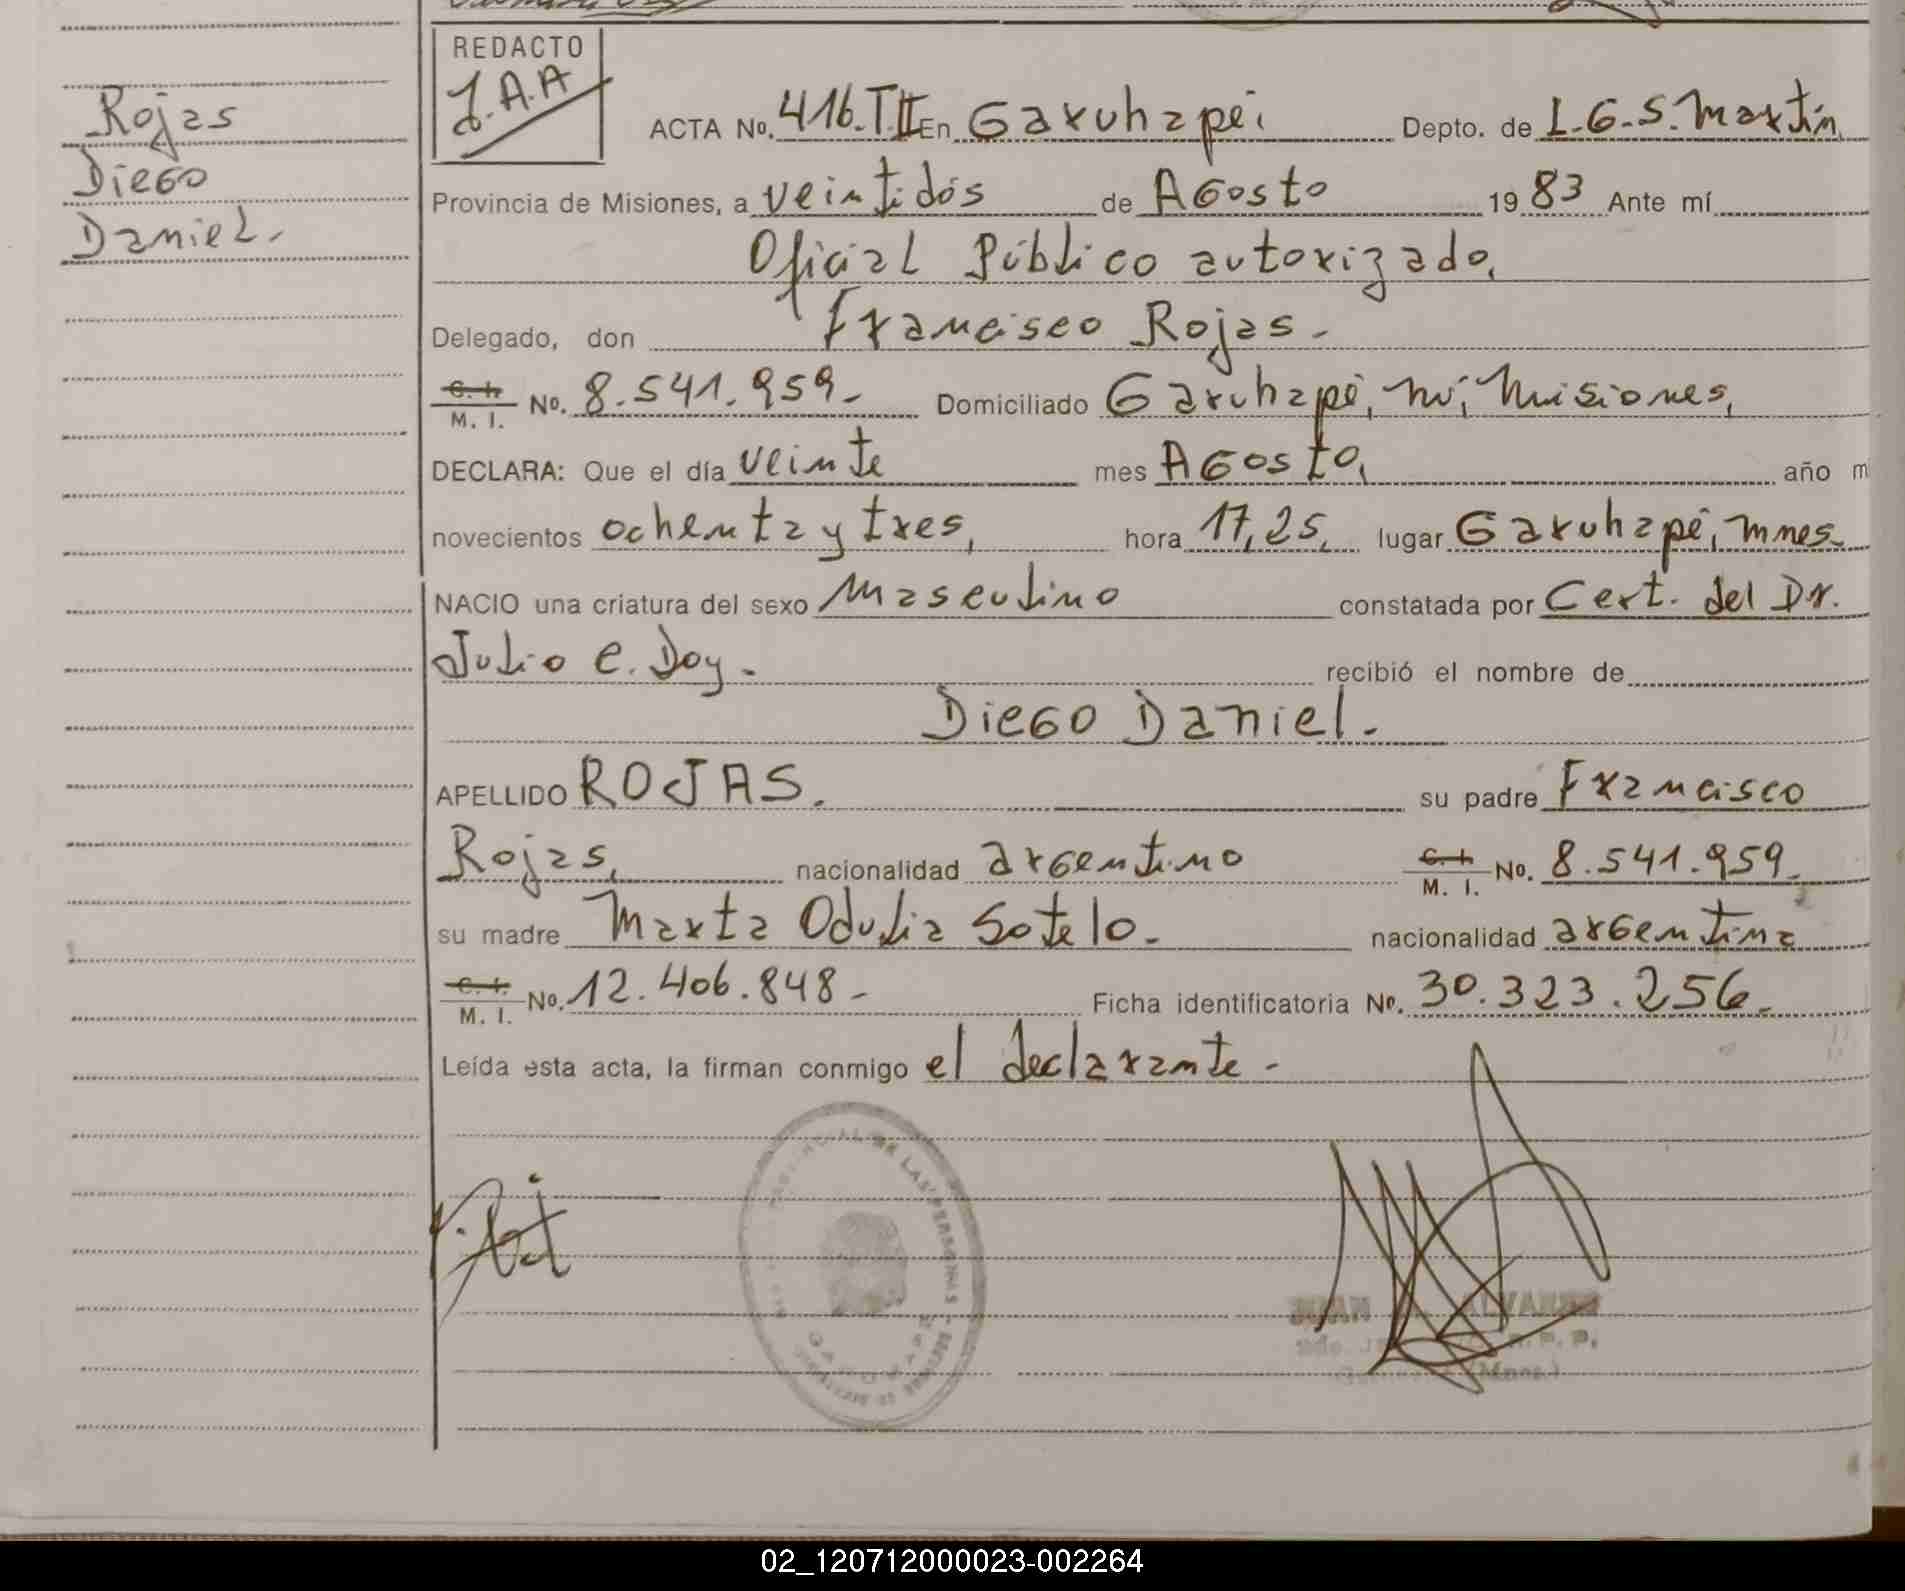 Rojas
Diego
Daniel.
REDACTO
J.A.A
ACTA No. 416.T.II En Garuhapé, Depto. de L.G.S. Martín,
Provincia de Misiones, a veintidós de Agosto 1983 Ante mí
Oficial Público autorizado,
Delegado, don Francisco Rojas.-
C. I.
M. I. No. 8.541.959.- Domiciliado Garuhapé, Misiones,
DECLARA: Que el día veinte mes Agosto, año m
novecientos ochenta y tres, hora 17,25, lugar Garuhapé, Mnes.
NACIO una criatura del sexo Masculino constatada por Cert. del Dr.
Julio C. Doy.- recibió el nombre de
Diego Daniel.
APELLIDO ROJAS. su padre Francisco
Rojas, nacionalidad argentino C. I.
M. I. No. 8.541.959.
su madre Marta Odulia Sotelo.- nacionalidad argentina
C. I.
M. I. No. 12.406.848.- Ficha identificatoria No. 30.323.256.-
Leída esta acta, la firman conmigo el declarante.-
DE LAS PERSONAS
(Mnes.)
02_120712000023-002264